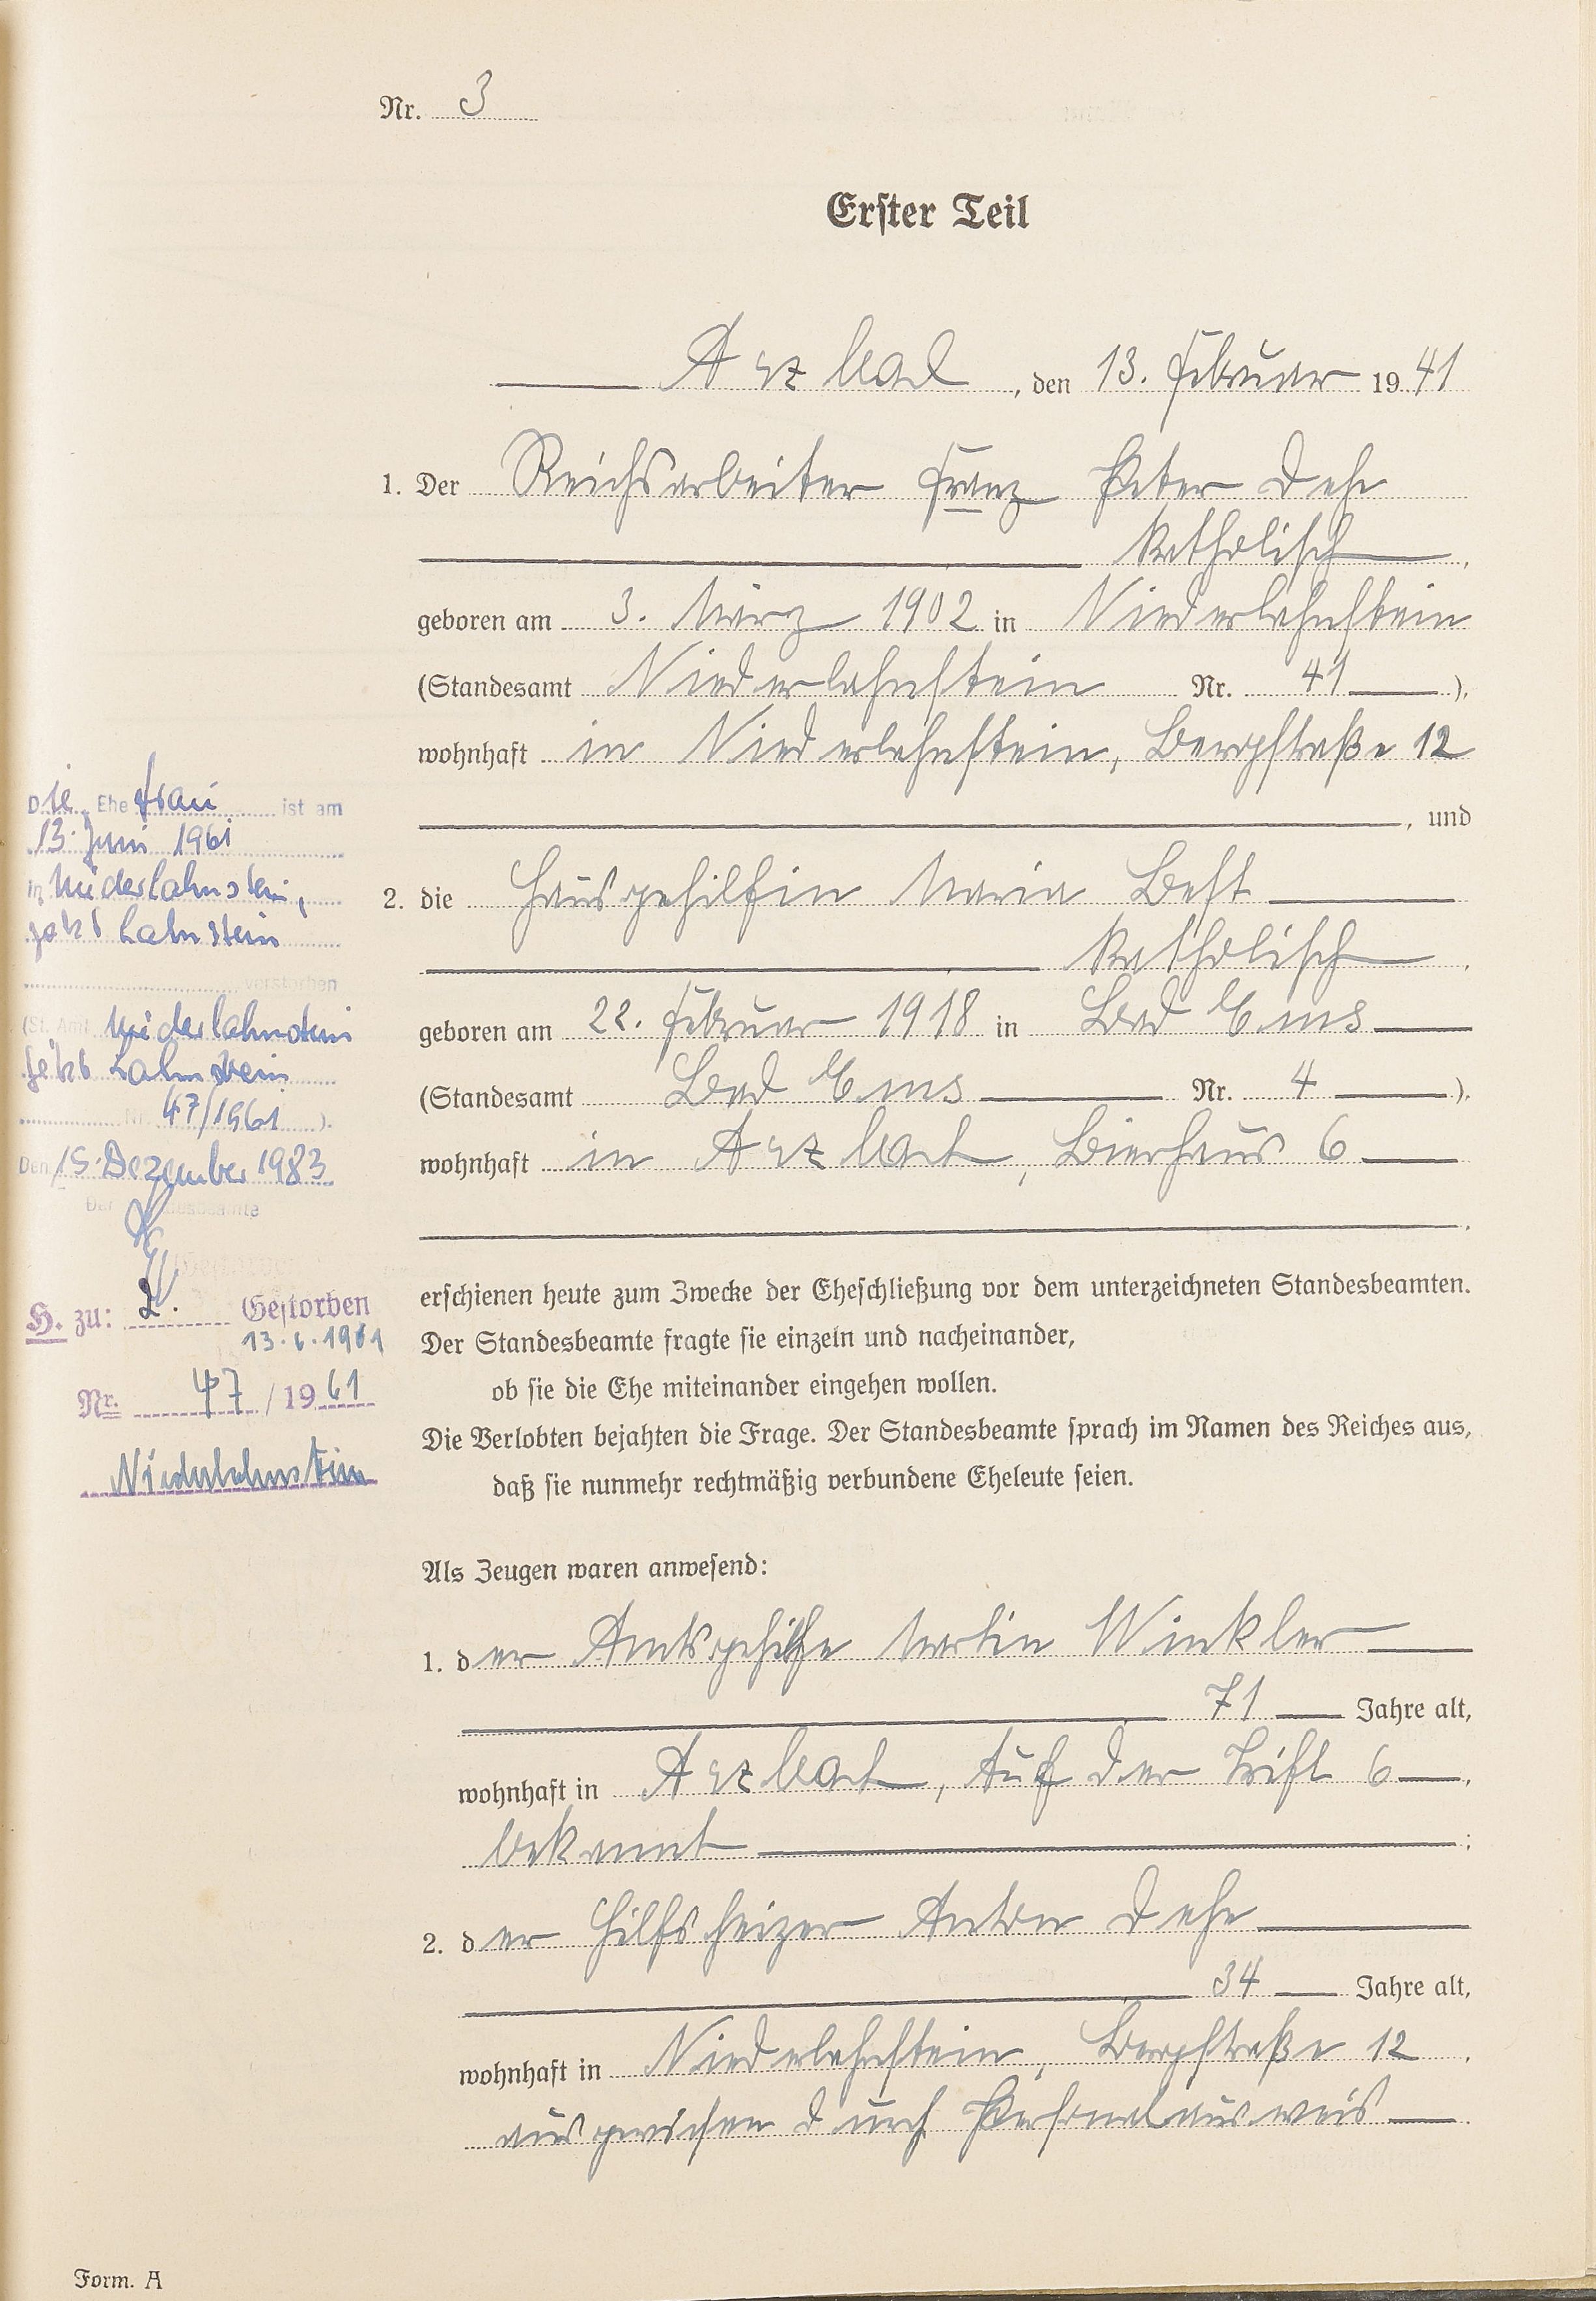 Nr. 3
Erster Teil
Arzbach, den 13. Februar 1941
1. Der Reichsarbeiter Franz Peter Dehe
katholisch,
geboren am 3. März 1902 in Niederlahnstein
(Standesamt Niederlahnstein Nr. 41),
wohnhaft in Niederlahnstein, Bergstraße 12
, und
2. die Hausgehilfin Maria Best
katholisch,
geboren am 22. Februar 1918 in Bad Ems
(Standesamt Bad Ems Nr. 4),
wohnhaft in Arzbach, Bierhaus 6
erschienen heute zum Zwecke der Eheschließung vor dem unterzeichneten Standesbeamten.
Der Standesbeamte fragte sie einzeln und nacheinander,
ob sie die Ehe miteinander eingehen wollen.
Die Verlobten bejahten die Frage. Der Standesbeamte sprach im Namen des Reiches aus,
daß sie nunmehr rechtmäßig verbundene Eheleute seien.
Als Zeugen waren anwesend:
1. der Amtsgehilfe Martin Winkler
71 Jahre alt,
wohnhaft in Arzbach, Auf der Trift 6,
bekannt;
2. der Hilfsheizer Anton Dehe
34 Jahre alt,
wohnhaft in Niederlahnstein, Bergstraße 12.
ausgewiesen durch Personalausweis.
Form. A
Die Ehefrau ist am
13. Juni 1961
in Niederlahnstein,
jetzt Lahnstein
verstorben
(St. Amt Niederlahnstein
jetzt Lahnstein
Nr. 47/1961).
Den 15. Dezember 1983
Der Standesbeamte
H. zu: 2. Gestorben
13.6.1961
Nr. 47/1961
Niederlahnstein